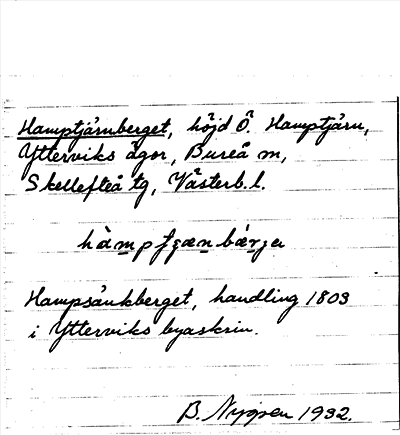 Hamptjärnberget, höjd Ö. Hamptjärn,
Ytterviks ägor, Bureå sn,
Skellefteå tg, Västerb. l.
Hampsänkberget, handling 1803
i Ytterviks byaskrin.
B. Nygren 1932.